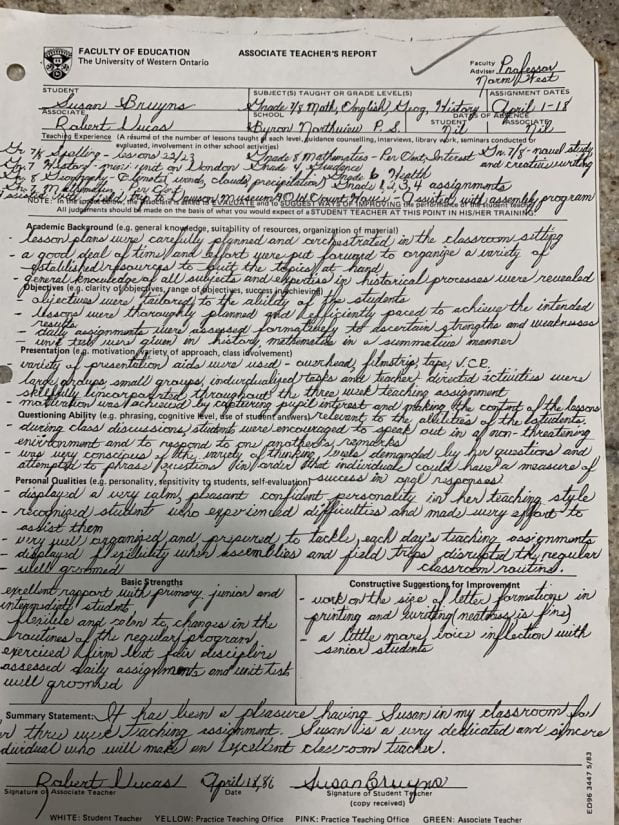 FACULTY OF EDUCATION
The University of Western Ontario
ASSOCIATE TEACHER'S REPORT
Faculty Adviser Professor
Norm
STUDENT
Susan Bruyns
SUBJECT(S) TAUGHT OR GRADE LEVEL(S)
Grade 7/8 Math, English, Geog, History
ASSIGNMENT DATES
April 1-18
ASSOCIATE
Robert Vucas
SCHOOL
Byron Northview P.S.
DATES OF ABSENCE
STUDENT Nil
ASSOCIATE Nil
Teaching Experience (A résumé of the number of lessons taught at each level, guidance counselling, interviews, library work, seminars conducted to
evaluated, involvement in other school activities)
Gr. 7/8 Spelling - lessons 22/23
Grade 8 Mathematics - Per Cent, Interest
Gr. 7/8 - novel study
Gr. 7 History - mini unit on London
Grade 4 Guidance
and creative writing
Gr. 8 Geography - Climate (wind, clouds, precipitation)
Grade 6 Health
Gr. 8 Mathematics - Per Cent
Grade 1, 2, 3, 4 assignments
field trip to Lawson Museum & Old Court House - Assisted with assembly program
All judgements should be made on the basis of what you would expect of a STUDENT TEACHER AT THIS POINT IN HIS/HER TRAINING.
Academic Background (e.g. general knowledge, suitability of resources, organization of material)
- lesson plans were carefully planned and orchestrated in the classroom sitting
- a good deal of time and effort were put forward to organize a variety of
established resources to suit the topics at hand
- general knowledge of all subjects and expertise in historical processes were revealed
Objectives (e.g. clarity of objectives, range of objectives, success in achieving)
- objectives were tailored to the ability of the students
- lessons were thoroughly planned and efficiently paced to achieve the intended
results
- daily assignments were assessed formatively to ascertain strengths and weaknesses
- unit tests were given in history, mathematics in a summative manner
Presentation (e.g. motivation, variety of approach, class involvement)
- variety of presentation aids were used - overhead, filmstrip, tape, V.C.R.
- large groups, small groups, individualized tasks and teacher-directed activities were
skillfully incorporated throughout the three week teaching assignment
- motivation was achieved by capturing pupil interest and making the content of the lessons
relevant to the abilities of the students.
Questioning Ability (e.g. phrasing, cognitive level, use of student answers)
- during class discussions, students were encouraged to speak out in a non-threatening
environment and to respond to one another's remarks
- was very conscious of the variety of thinking levels demanded by her questions and
attempted to phrase questions in order that individuals could have a measure of
success in oral responses
Personal Qualities (e.g. personality, sensitivity to students, self-evaluation)
- displayed a very calm, pleasant confident personality in her teaching style
- recognized students who experienced difficulties and made every effort to
assist them
- very well organized and prepared to tackle each day's teaching assignments
- displayed flexibility when assemblies and field trips disrupted the regular
classroom routine.
- well groomed
Basic Strengths
excellent rapport with primary, junior and
intermediate students
flexible and calm to changes in the
routines of the regular program
exercised firm but fair discipline
assessed daily assignments and unit tests
well groomed
Constructive Suggestions for Improvement
- work on the size of letter formations in
printing and writing (neatness is fine)
- a little more voice inflection with
senior students
Summary Statement: It has been a pleasure having Susan in my classroom for
her three week teaching assignment. Susan is a very dedicated and sincere
individual who will make an excellent classroom teacher.
Robert Vucas
April 18, 86
Susan Bruyns
Signature of Associate Teacher
Date
Signature of Student Teacher
(copy received)
WHITE: Student Teacher YELLOW: Practice Teaching Office PINK: Practice Teaching Office GREEN: Associate Teacher
ED96 3447 5/83